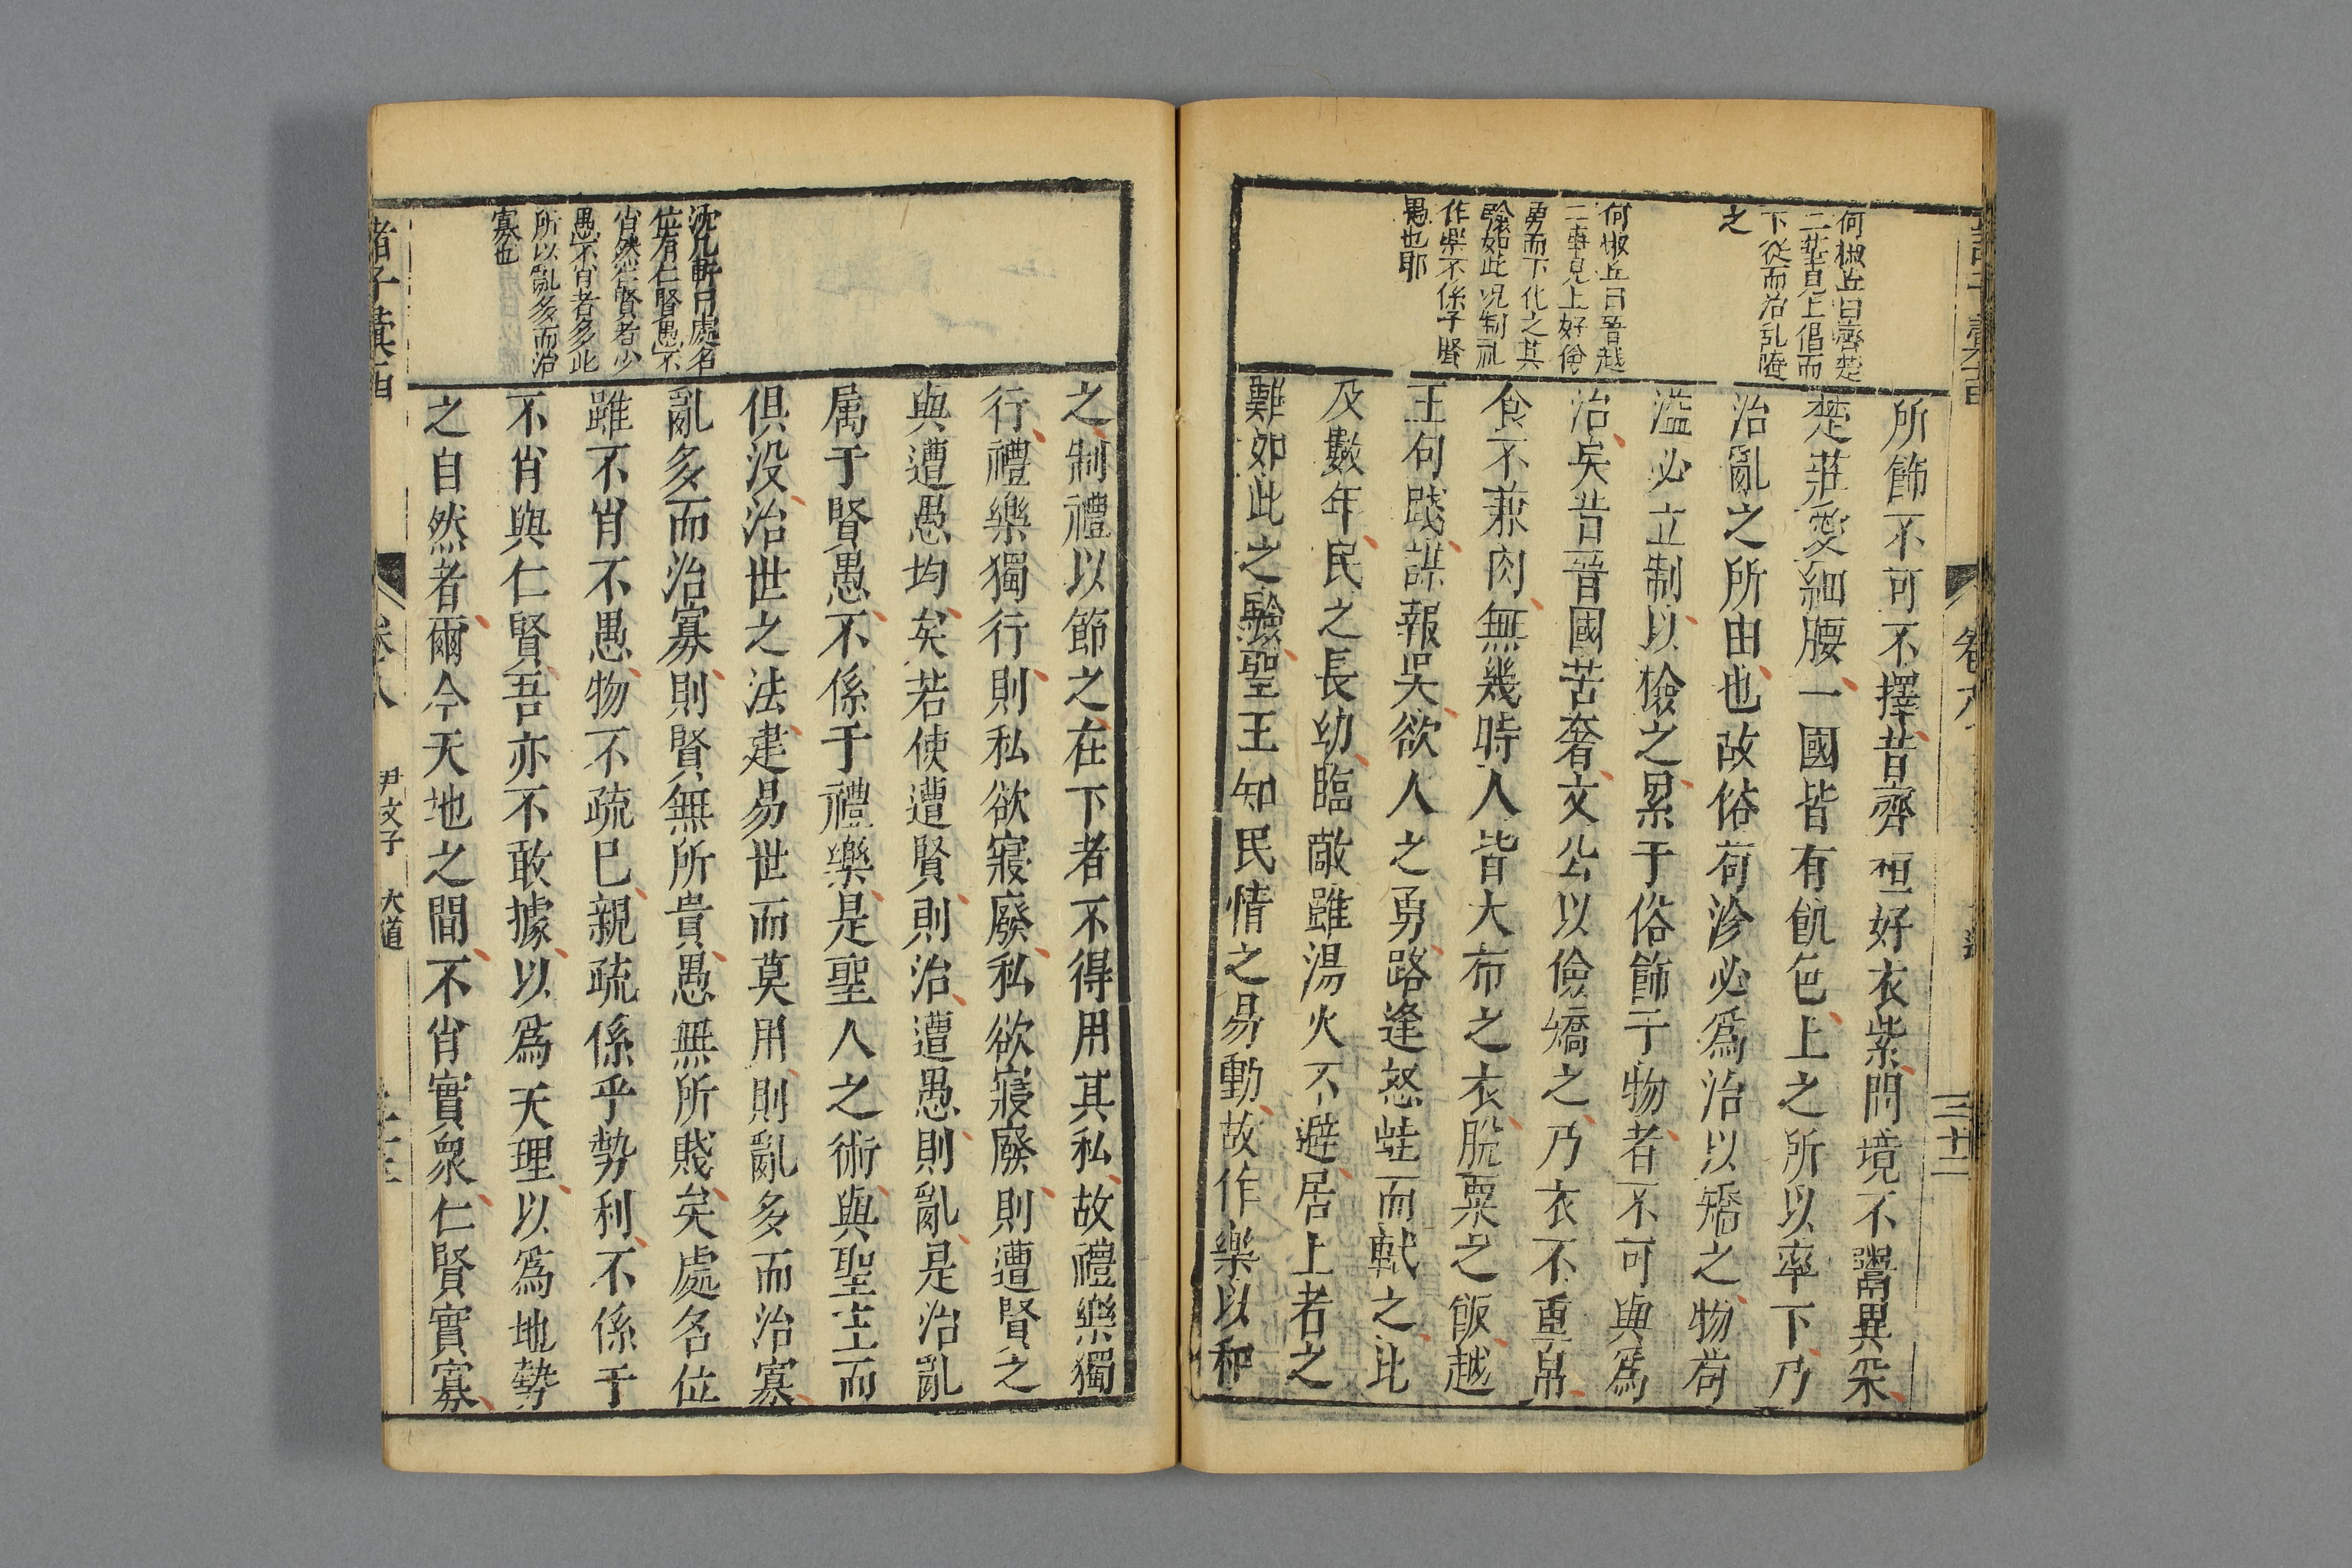 何椒丘曰齊楚
二事見上倡而
下從而治乱隨
之
何椒丘曰晉越
二事見上好儉
勇而下化之其
驗如此况制礼
作樂不係乎賢
愚也耶
所飾不可不擇昔齊桓好衣紫闔境不鬻異采
楚莊愛細腰一國皆有飢色上之所以率下乃
治亂之所由也故俗苟沴必爲治以矯之物苟
溢必立制以檢之累于俗飾于物者不可與爲
治矣昔晉國苦奢文公以儉矯之乃衣不重帛
食不兼肉無幾時人皆大布之衣脫粟之飯越
王句踐謀報吳欲人之勇路逢怒蛙而軾之比
及數年民之長幼臨敵雖湯火不避居上者之
難如此之驗聖王知民情之易動故作樂以和
卷八
三十二
沈几軒曰處名
位有仁賢愚不
肖然仁賢者少
愚不肖者多此
所以亂多而治
寡也
之制禮以節之在下者不得用其私故禮樂獨
行禮樂獨行則私欲寢廢私欲寢廢則遭賢之
與遭愚均矣若使遭賢則治遭愚則亂是治亂
属于賢愚不係于禮樂是聖人之術與聖主而
俱没治世之法逮易世而莫用則亂多而治寡
亂多而治寡則賢無所貴愚無所賤矣處名位
雖不肖不愚物不疏已親疏係乎勢利不係于
不肖與仁賢吾亦不敢據以爲天理以爲地勢
之自然者爾今天地之間不肖實衆仁賢實寡
諸子彙函
卷八
尹文子
大道